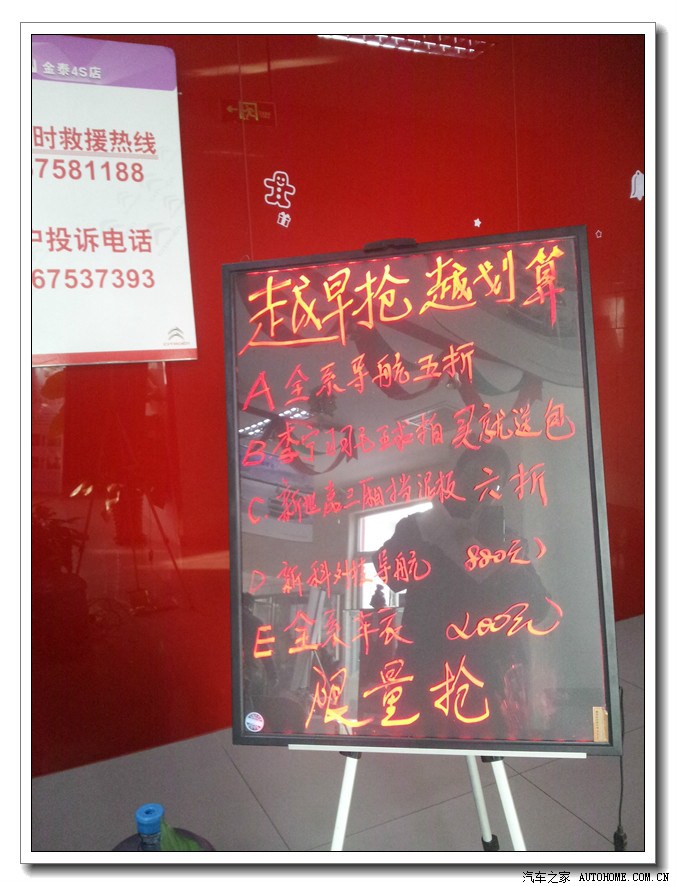 金泰4S店
时救援热线
7581188
户投诉电话
67537393
越早抢 越划算
A 全系导航五折
B 李宁羽毛球拍 买就送包
C 新世嘉三厢挡泥板 六折
D 新科外挂导航 880元
E 全系车衣 200元
限量抢
汽车之家 AUTOHOME.COM.CN